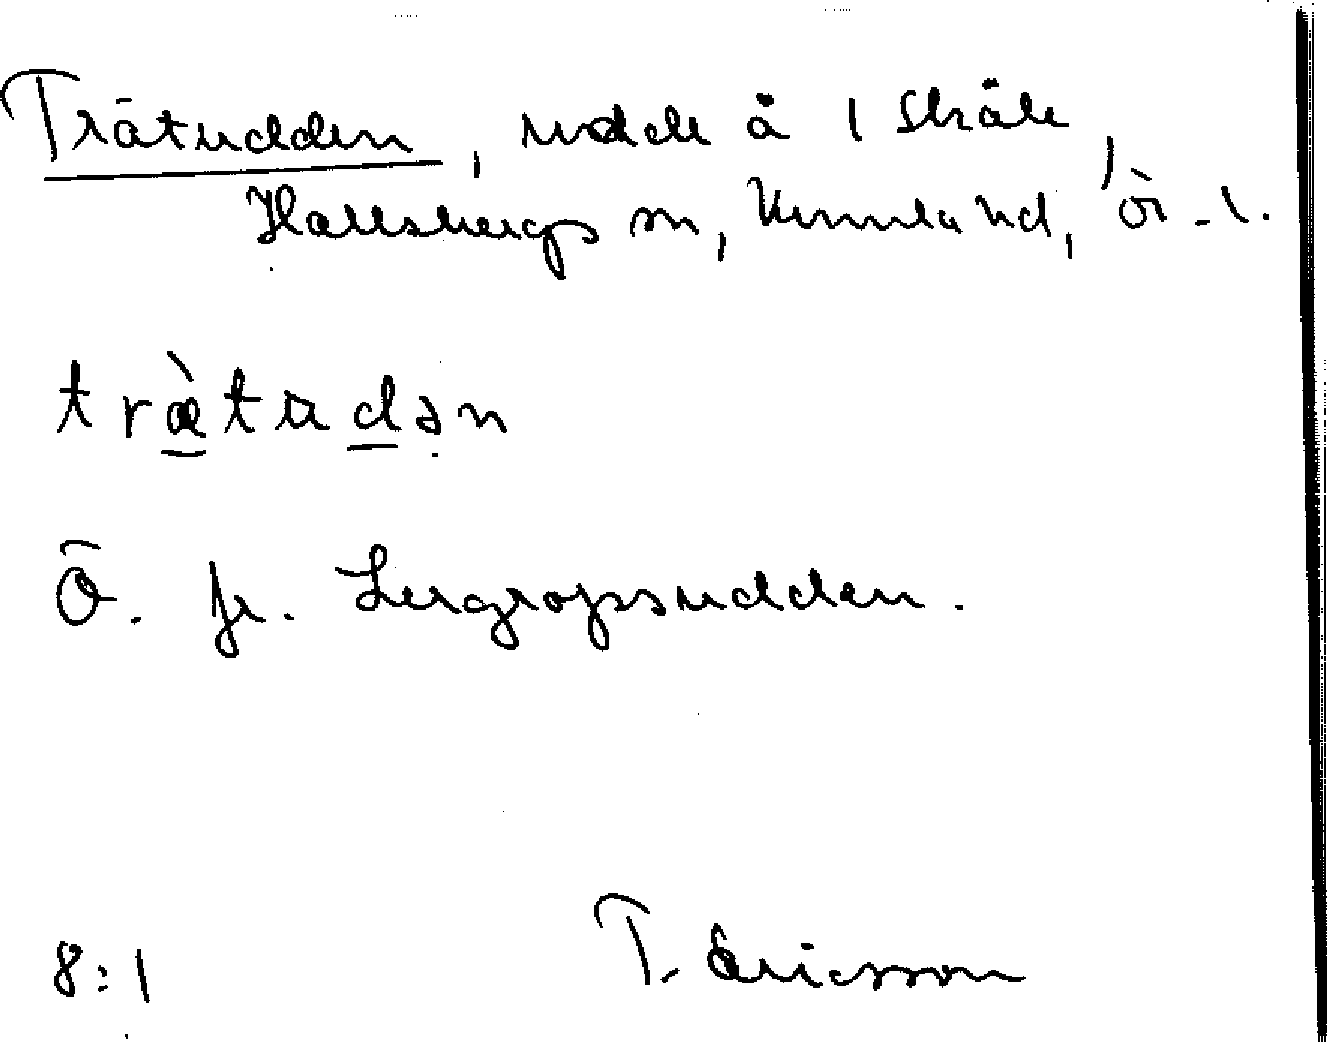 Trätudden, udde å 1 Skråle,
Hallsbergs sn, Kumla hd, Ör. l.
trätudən
Ö. fr. Lergropsudden.
8:1 T. Ericsson